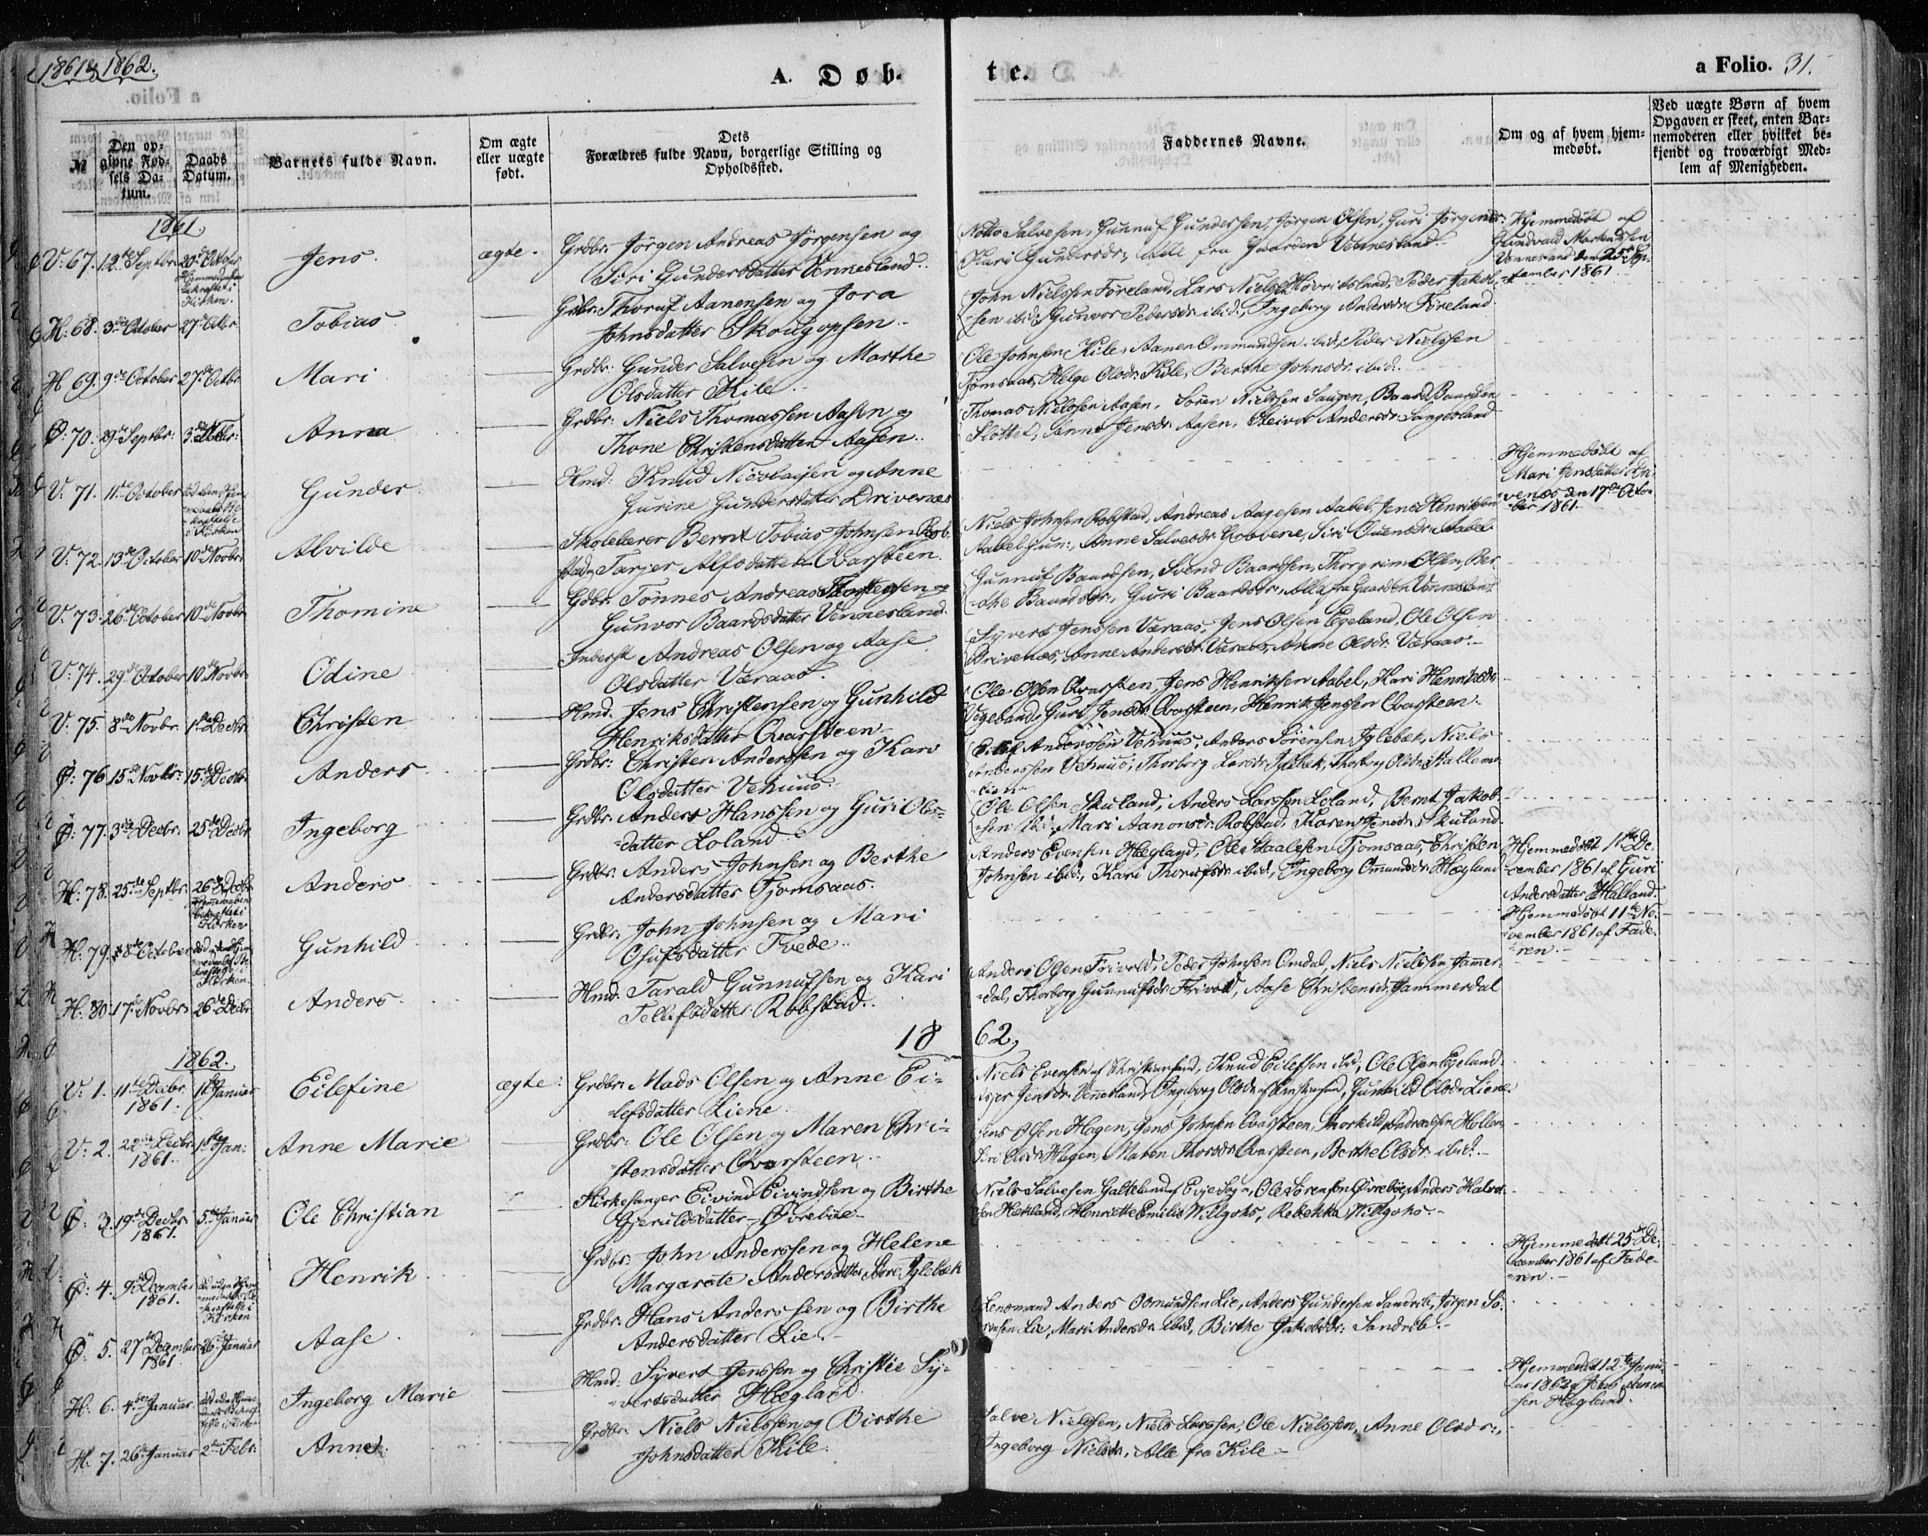 1861 & 1862.
A. Døb-
te.
a Folio. 31.
№
Den opgivne Fødsels Datum.
Daabs Datum.
Barnets fulde Navn.
Om ægte eller uægte født.
Dets Forældres fulde Navn, borgerlige Stilling og Opholdssted.
Faddernes Navne.
Om og af hvem hjemmedøbt.
Ved uægte Børn af hvem Opgaven er skeet, enten Barnemoderen eller hvilket bekjendt og troværdigt Medlem af Menigheden.
1861.
V. 67. 12te Septbr 20de October
Jens
ægte.
Grdbr: Jørgen Andreas Jørgensen og
Siri Gundersdatter Vennesland.
Notto Salvesen, Gunnuf Gundersen, Jørgen Olsen, Guri Jørgensdr
Kari Gundersdr, alle fra Gaarden Vennesland.
Hjemmedøbt af
Gundvald Mortensen
Vennesland den 25de Sep-
tember 1861
H. 68. 3die October 27de Octbr
Tobias
Grdbr: Thoruf Aanensen og Jora
Johnsdatter Skougopsen.
John Nielssen Føreland, Lars Nielssen Høvritsland, Peder Jakob-
sen ibid, Gunvor Pedersdr ibid, Ingeborg Andersdr Føreland.
H 69. 9de October 27de Octbr.
Mari
Grdbr: Gunder Salvesen og Marthe
Olsdatter Kile
Ole Johnsen Kile, Aanen Ommundsen ibid, Peder Nielssen
Tjomsaas, Helge Olsdr Kile, Berthe Johnsdr ibid.
Ø: 70. 29de Septbr: 3die Novbr:
Anna
Grdbr: Niels Thomassen Aasen og
Thone Christensdatter Aasen.
Thomas Nielssen Aasen, Søren Nielssen Haugen, Baard Baardsen
Slottet, Anne Jensdr Aasen, Oleivor Andersdr Langeland
V. 71. 11te October
Gunder
Hmd: Knud Nicolaysen og Anne
Gurine Gundersdatter Drivenæs
Hjemmedøbt af
Mari Jensdatter Dri-
venæs den 17de Octo-
ber 1861.
V: 72. 13de October 10de Novbr
Alvilde
Skolelærer Bernt Tobias Johnsen Rob-
stad, Tarjer Alfsdatter Qvarsteen.
Niels Johnsen Robstad, Andreas Aagesen Aabel, Jens Henriksen
Aabel jun:, Anne Salvesdr
V: 73. 26de October 10de Novbr
Thomine
Grdbr: Tønnes Andreas
Gunvor Baardsdatter Vennesland.
Gunnuf Baardsen, Svend Baardsen, Thorgrim Olsen, Ber-
the Baardsdr, Guri Baardsdr, Alle fra Gaarden Vennesland
V: 74. 29de October 10de Novbr
Odine
Inderst Andreas Olsen og Aase
Olsdatter Væraas.
Syvert Jenssen Væraas, Jens Olsen Egeland, Ole Olsen
Drivenæs, Anne Andersdr Væraas, Anne Olsdr Væraas.
V: 75. 8de Novbr. 1ste Decbr.
Christen
Hmd: Jens Christensen og Gunhild
Henriksdatter Qvarsteen
Ole Olsen Qvarsteen, Jens Henriksen Aabel, Kari Henriksdr
Vigeland, Guri Jensdr Qvarsteen, Henrik Jenssen Qvarsteen.
Ø: 76 15de Novbr: 15de Decbr
Anders
Grdbr: Christen Anderssen og Kari
Olsdatter Vehuus.
Anderssen Vehuus, Anders Sørensen Iglebæk, Niels
Anderssen Vehuus, Thorborg Larsdr Iglebæk,
Ø: 77. 3die Decbr: 25de Decbr
Ingeborg
Grdbr: Anders Hanssen og Guri Ols-
datter Loland
Ole Olsen Skuland, Anders Larssen Loland, Bernt Jakob-
sen ibid, Mari Aanonsdr Robstad, Karen Jensdr Skuland.
H. 78. 25de Septbr: 26de Decbr
Anders
Grdbr: Anders Johnsen og Berthe
Andersdatter Tjomsaas.
Anders Evensen Hægland, Ole Staalesen Tjomsaas, Christen
Johnsen ibid, Kari Thorufsdr ibid, Ingeborg Omundsdr Hægland
Hjemmedøbt 1ste De-
cember 1861 af Guri
Andersdatter Hølland.
H: 79. 8de October
Gunhild
Grdbr: John Johnsen og Mari
Osufsdatter Tvede.
Hjemmedøbt 11te No-
vember 1861 af Fade-
ren.
H: 80. 17de Novbr: 26de Decbr
Anders
Hmd: Tarald Gunnufsen og Kari
Tellefsdatter Robstad.
Anders Olsen Frivold, Peder Johnsen Omdal, Niels Nielssen Jammer-
dal, Thorborg Gunnufsdr Frivold, Aase Christensdr Jammerdal
1862.
18
62,
V: 1. 11te Decbr 1861. Januar
Eilefine
ægte.
Grdbr: Mads Olsen og Anne Ei-
lefsdatter Liene
Niels Evensen af Christiansand, Knud Eilefsen ibid, Ole Olsen Egeland,
Jensdr Vennesland, Ingeborg Olsdr af Christiansand, Gunhild Olsdr Liene
V: 2. 22de Decbr 1861. Jan:
Anne Marie
Grdbr: Ole Olsen og Maren Chri-
stensdatter Qvarsteen.
Jens Olsen Hagen, Jens Johnsen Qvarsteen, Thorkild Andreassen Hollen
Siri Olsdr Hagen, Maren Thorsdr Qvarsteen, Berthe Olsdr ibid.
Ø: 3. 19de Decbr 1861. 5te Januar
Ole Christian
Kirkesanger Eivind Eivindsen og Birthe
Gjerulfsdatter Øvrebøe
Niels Salvesen Galteland af Evje Sogn, Ole Sørensen Øvrebøe, Anders Halvor-
sen Hækland, Henriette Emilie Willgohs, Rebekka Willgohs.
Ø: 4. 9de December 1861.
Henrik
Grdbr: John Anderssen og Helene
Margarete Andersdatter Iglebæk
Hjemmedøbt 25de De-
cember 1861 af Fade-
ren.
Ø: 5. 27de December 1861 26de Januar
Aase
Grdbr: Hans Anderssen og Birthe
Andersdatter Lie
Lensmand Anders Osmundsen Lie, Anders Gundersen Sandrib, Jørgen Sø-
rensen Lie, Mari Andersdr ibid, Birthe Jakobsdr Sandrib
H: 6. 4de Januar.
Ingeborg Marie
Hmd: Syvert Jenssen og Christie Sy-
vertsdatter Hægland.
Hjemmedøbt 12te Janu-
ar 1862 af Jens Aanen-
sen Hægland.
H. 7. 26de Januar 2den Febr:
Anne
Grdbr: Niels Nielssen og Birthe
Johnsdatter Kile.
Salve Nielssen, Niels Larssen, Ole Nielssen, Anne Olsdr,
Ingeborg Nielsdr, Alle fra Kile